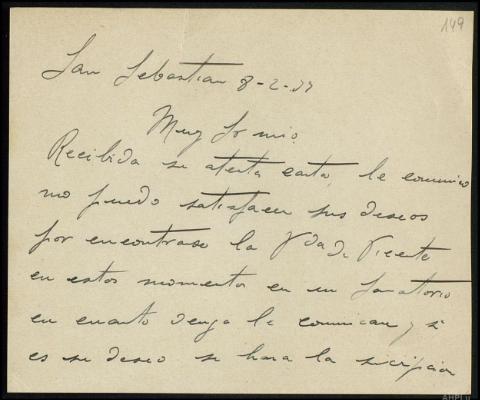 149
San Sebastian 8-2-37
Muy Sr mio:
Recibida su atenta carta, le comunico
no puedo satisfacer sus deseos
por encontrase la Vda de Vicente
en estos momentos en un Sanatorio
en cuanto venga le comunicare y si
es su deseo se hara la suscripcion